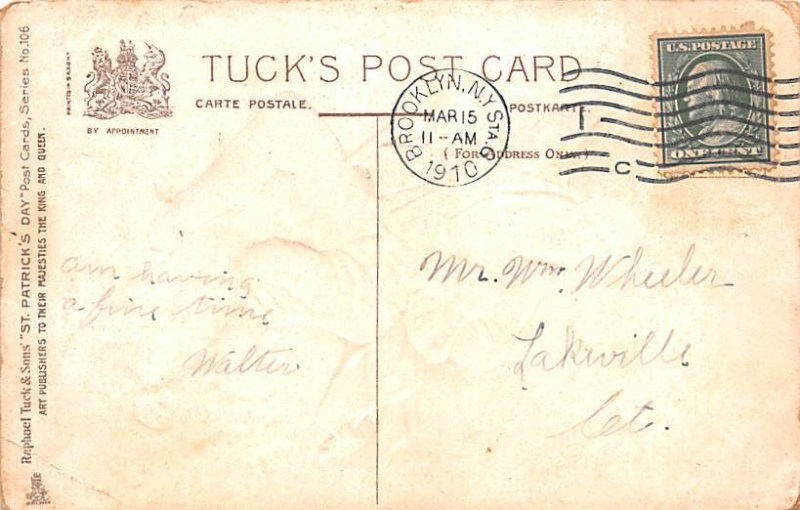 Raphael Tuck & Sons' "ST. PATRICK'S DAY" Post Cards, Series No. 106
ART PUBLISHERS TO THEIR MAJESTIES THE KING AND QUEEN.
PRINTED IN SAXONY
BY APPOINTMENT
TUCK'S POST CARD
CARTE POSTALE.
POSTKARTE.
(FOR ADDRESS ONLY.)
BROOKLYN, N.Y. STA. G
MAR 15
11-AM
1910
C
U.S. POSTAGE
ONE CENT
am having
a fine time
Walter
Mr. Wm. Wheeler
Lakeville
Ct.